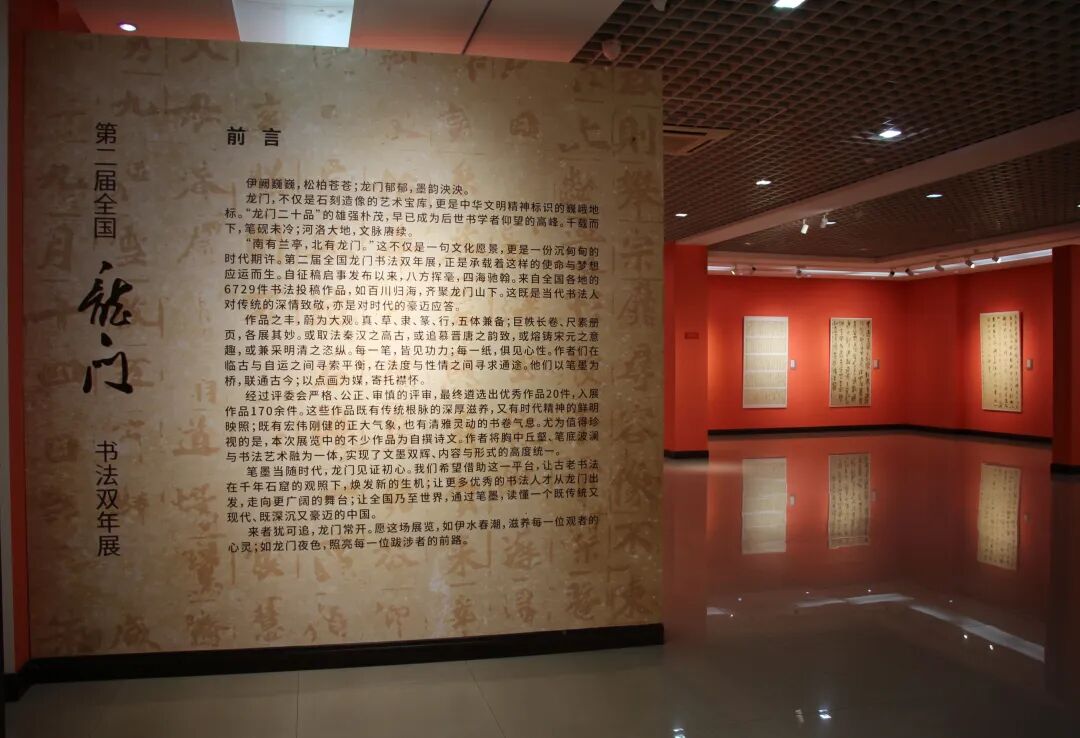 第二届全国
龙门
书法双年展
前言
伊阙巍巍，松柏苍苍；龙门郁郁，墨韵泱泱。
龙门，不仅是石刻造像的艺术宝库，更是中华文明精神标识的巍峨地
标。“龙门二十品”的雄强朴茂，早已成为后世书学者仰望的高峰。千载而
下，笔砚未冷；河洛大地，文脉赓续。
“南有兰亭，北有龙门。”这不仅是一句文化愿景，更是一份沉甸甸的
时代期许。第二届全国龙门书法双年展，正是承载着这样的使命与梦想
应运而生。自征稿启事发布以来，八方挥毫，四海驰翰。来自全国各地的
6729件书法投稿作品，如百川归海，齐聚龙门山下。这既是当代书法人
对传统的深情致敬，亦是对时代的豪迈应答。
作品之丰，蔚为大观。真、草、隶、篆、行，五体兼备；巨帙长卷、尺素册
页，各展其妙。或取法秦汉之高古，或追慕晋唐之韵致，或熔铸宋元之意
趣，或兼采明清之恣纵。每一笔，皆见功力；每一纸，俱见心性。作者们在
临古与自运之间寻索平衡，在法度与性情之间寻求通途。他们以笔墨为
桥，联通古今；以点画为媒，寄托襟怀。
经过评委会严格、公正、审慎的评审，最终遴选出优秀作品20件，入展
作品170余件。这些作品既有传统根脉的深厚滋养，又有时代精神的鲜明
映照；既有宏伟刚健的正大气象，也有清雅灵动的书卷气息。尤为值得珍
视的是，本次展览中的不少作品为自撰诗文。作者将胸中丘壑、笔底波澜
与书法艺术融为一体，实现了文墨双辉、内容与形式的高度统一。
笔墨当随时代，龙门见证初心。我们希望借助这一平台，让古老书法
在千年石窟的观照下，焕发新的生机；让更多优秀的书法人才从龙门出
发，走向更广阔的舞台；让全国乃至世界，通过笔墨，读懂一个既传统又
现代、既深沉又豪迈的中国。
来者犹可追，龙门常开。愿这场展览，如伊水春潮，滋养每一位观者的
心灵；如龙门夜色，照亮每一位跋涉者的前路。